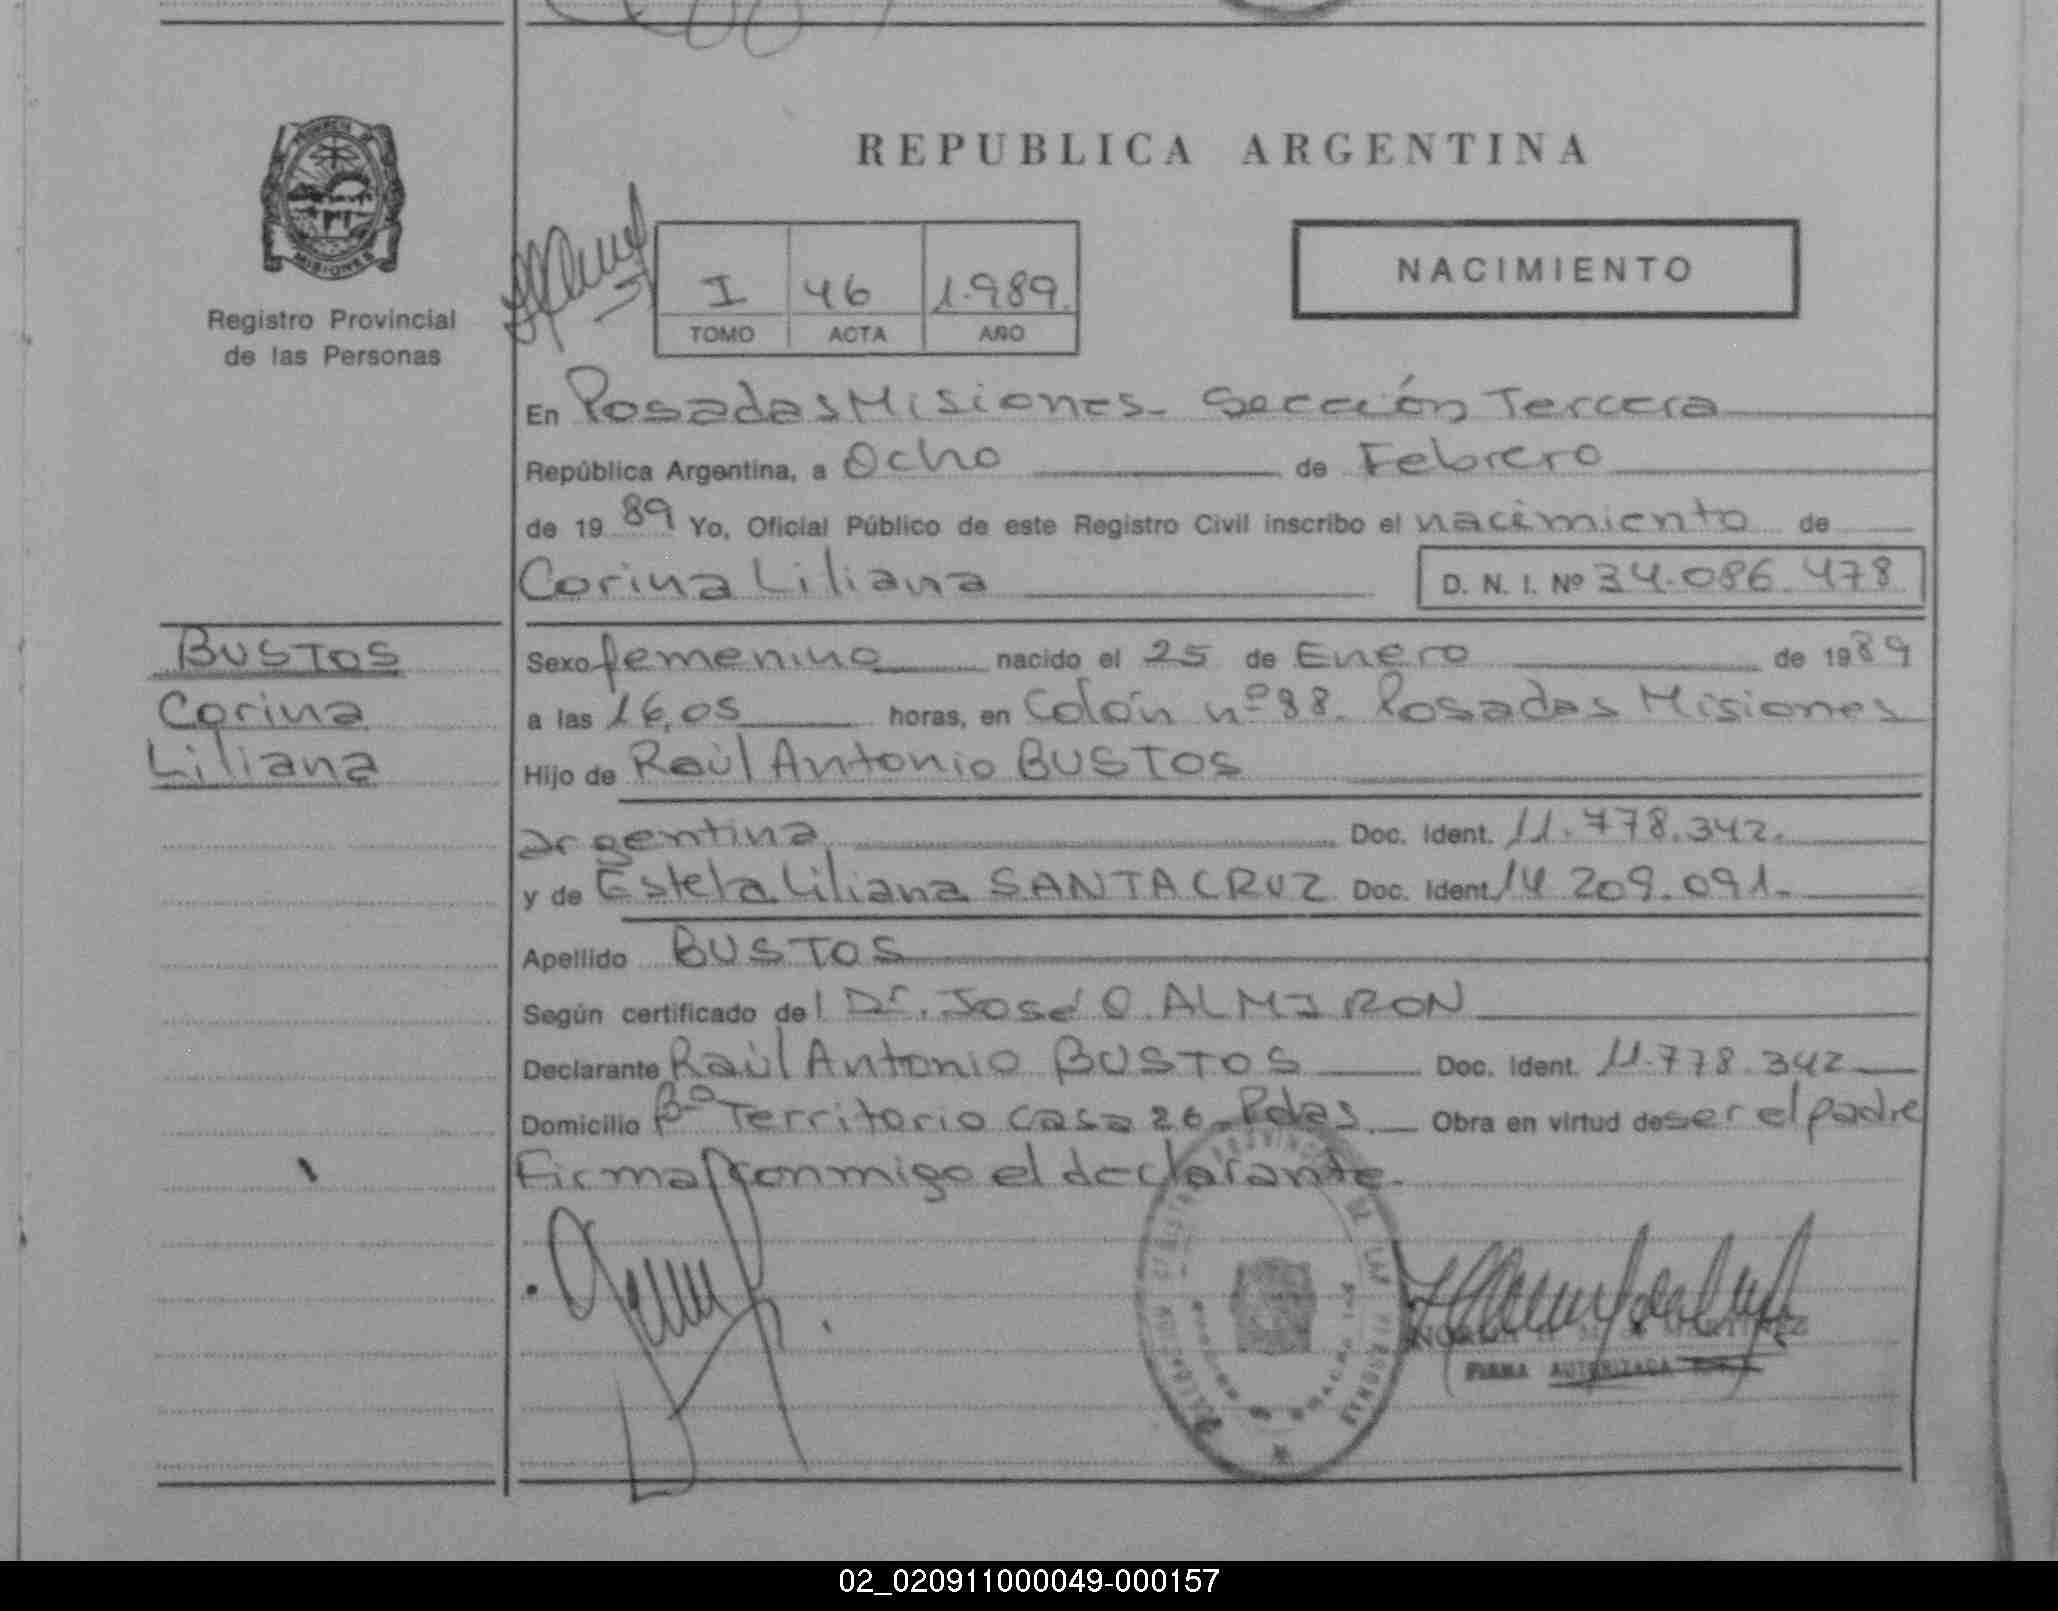 PROVINCIA DE
MISIONES
Registro Provincial
de las Personas
REPUBLICA ARGENTINA
I 46 1.989.
TOMO ACTA AÑO
NACIMIENTO
En Posadas Misiones - Sección Tercera
República Argentina, a Ocho de Febrero
de 19 89 Yo, Oficial Público de este Registro Civil inscribo el nacimiento de
Corina Liliana D. N. I. Nº 34.086.478
BUSTOS
Corina
Liliana
Sexo femenino nacido el 25 de Enero de 1989
a las 16,05 horas, en Colón nº 88. Posadas Misiones
Hijo de Raúl Antonio BUSTOS
argentina Doc. Ident. 11.778.342.
y de Estela Liliana SANTACRUZ Doc. Ident. 14 209.091.
Apellido BUSTOS
Según certificado del Dr. José O. ALMIRON
Declarante Raúl Antonio BUSTOS Doc. Ident. 11.778.342
Domicilio Bº Territorio casa 26 - Pdas. Obra en virtud de ser el padre
Firma conmigo el declarante.
FIRMA AUTORIZADA
02_020911000049-000157